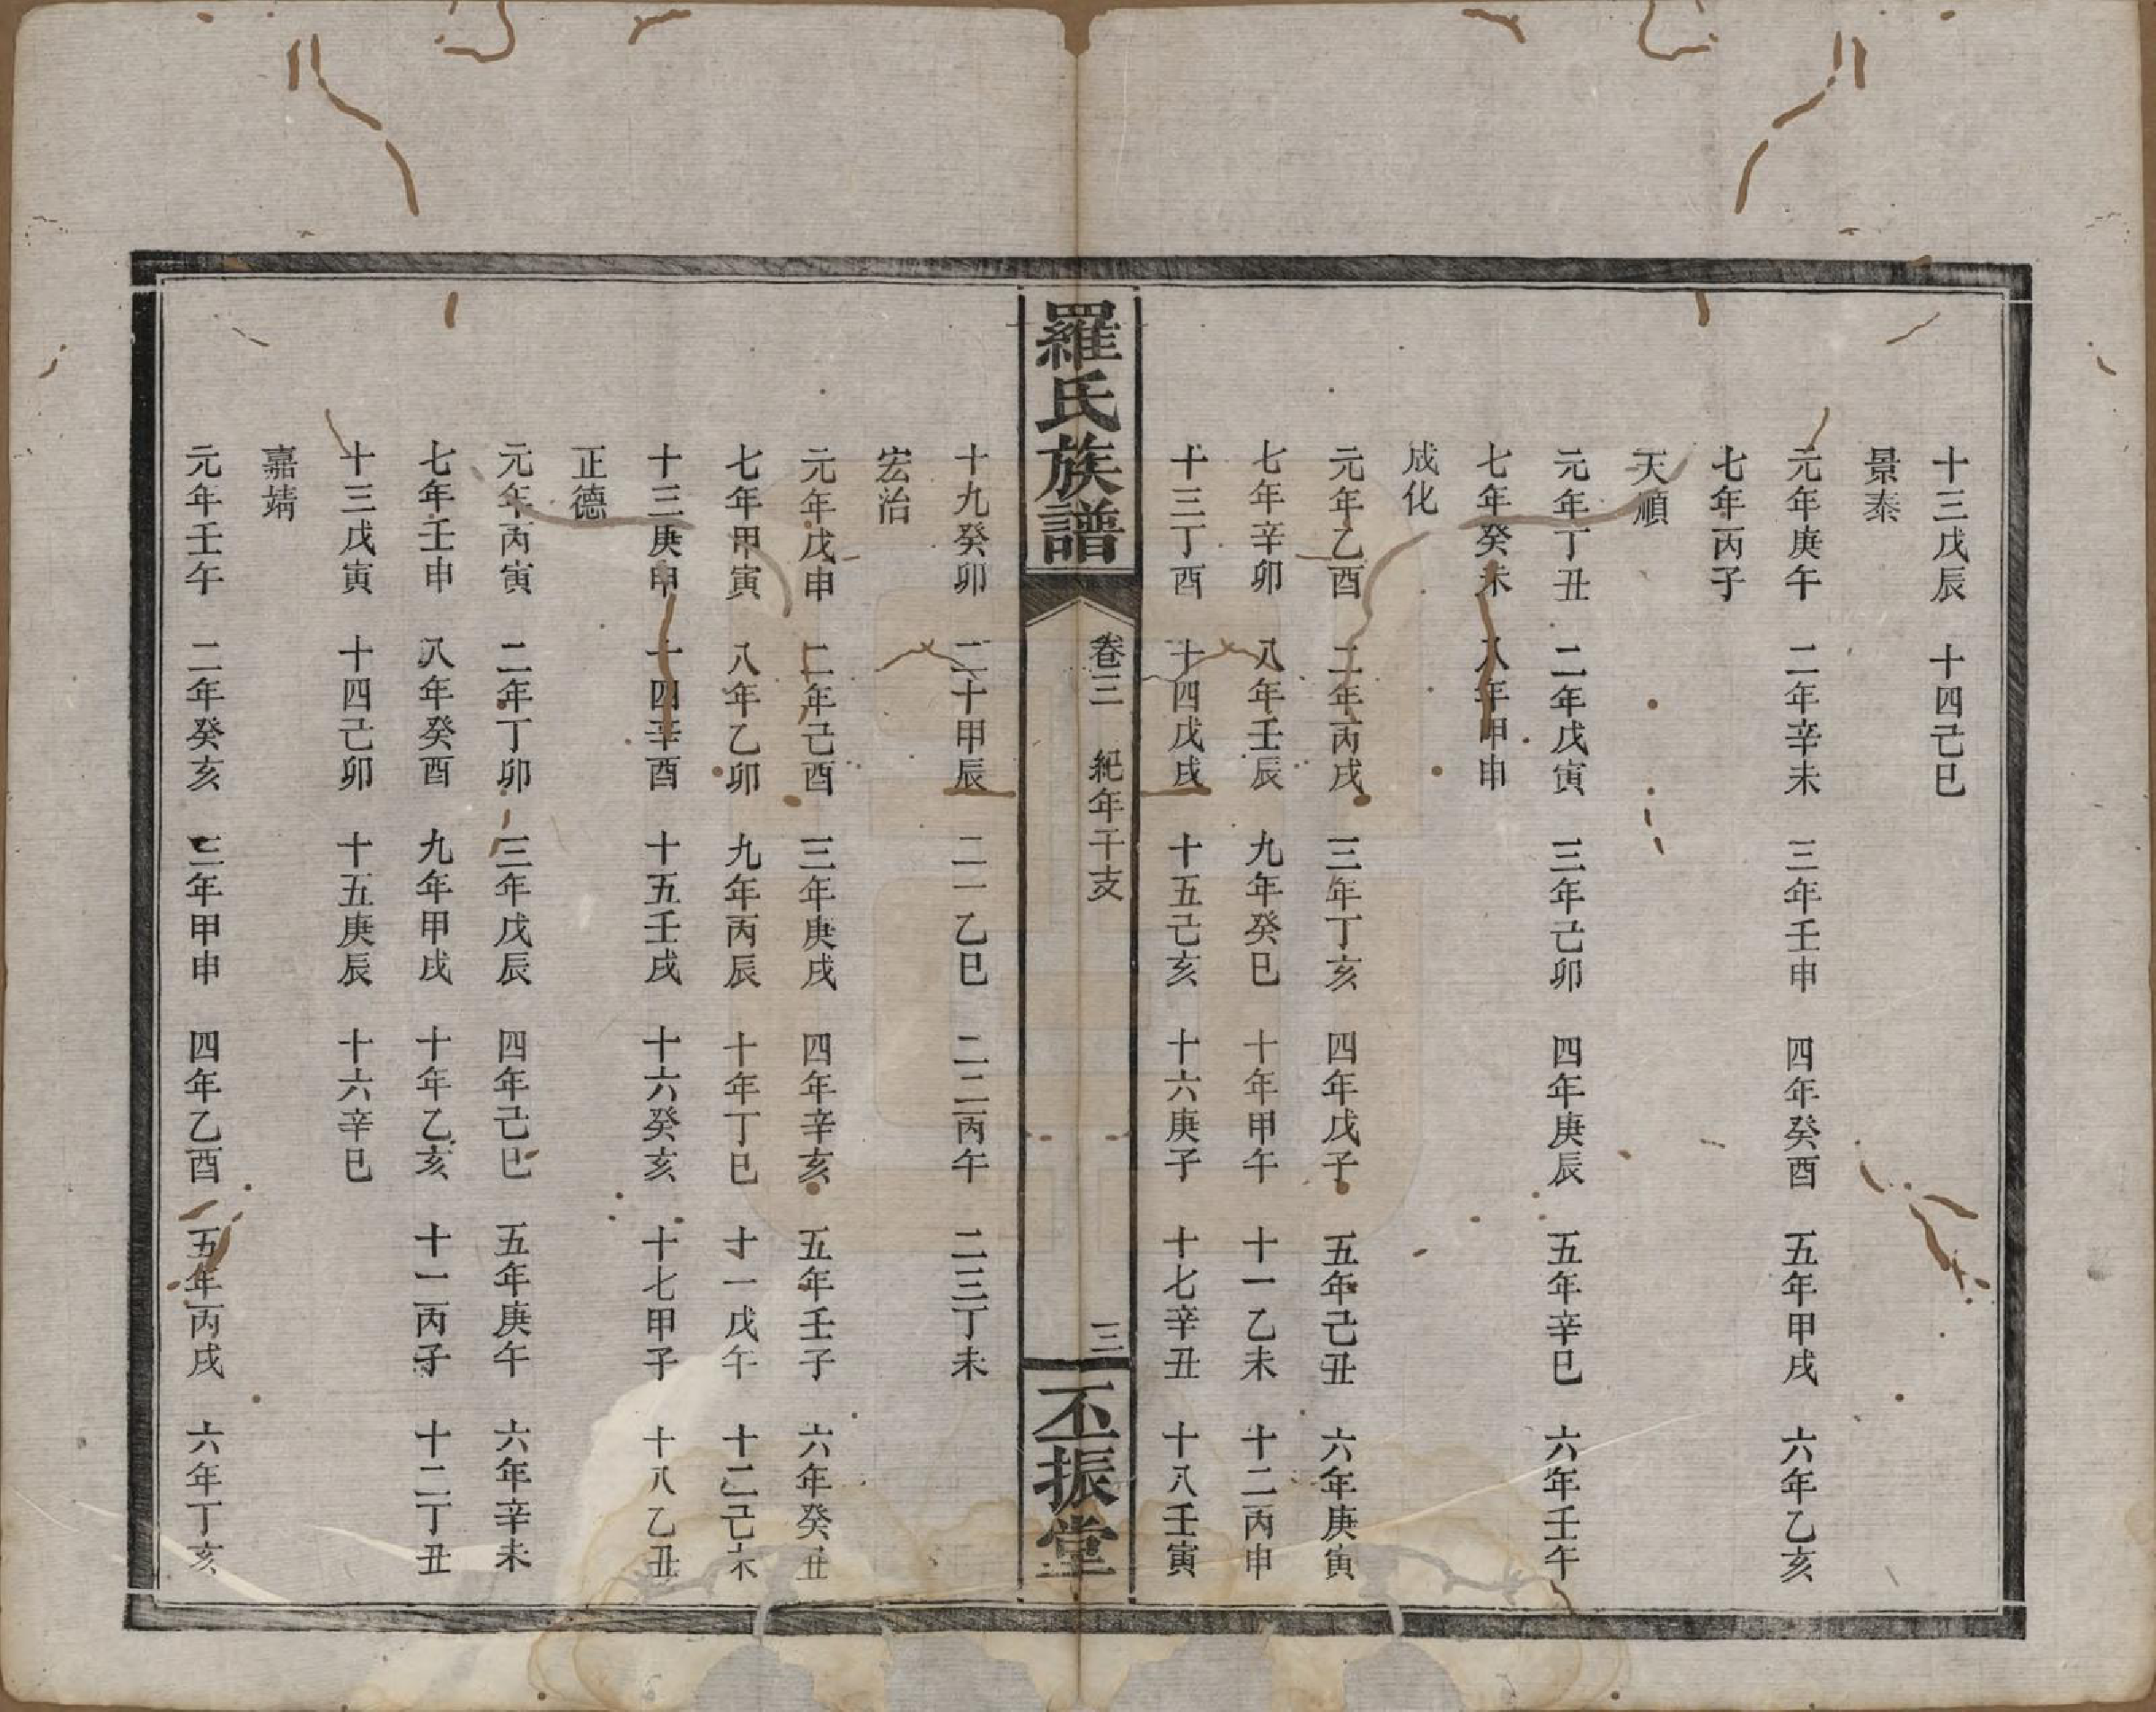 十三戊辰　十四己巳
景泰
元年庚午　二年辛未　三年壬申　四年癸酉　五年甲戌　六年乙亥
七年丙子
天順
元年丁丑　二年戊寅　三年己卯　四年庚辰　五年辛巳　六年壬午
七年癸未　八年甲申
成化
元年乙酉　二年丙戌　三年丁亥　四年戊子　五年己丑　六年庚寅
七年辛卯　八年壬辰　九年癸巳　十年甲午　十一乙未　十二丙申
十三丁酉　十四戊戌　十五己亥　十六庚子　十七辛丑　十八壬寅
羅氏族譜
卷三　紀年干支　三
丕振堂
十九癸卯　二十甲辰　二一乙巳　二二丙午　二三丁未
宏治
元年戊申　二年己酉　三年庚戌　四年辛亥　五年壬子　六年癸丑
七年甲寅　八年乙卯　九年丙辰　十年丁巳　十一戊午　十二己未
十三庚申　十四辛酉　十五壬戌　十六癸亥　十七甲子　十八乙丑
正德
元年丙寅　二年丁卯　三年戊辰　四年己巳　五年庚午　六年辛未
七年壬申　八年癸酉　九年甲戌　十年乙亥　十一丙子　十二丁丑
十三戊寅　十四己卯　十五庚辰　十六辛巳
嘉靖
元年壬午　二年癸亥　三年甲申　四年乙酉　五年丙戌　六年丁亥